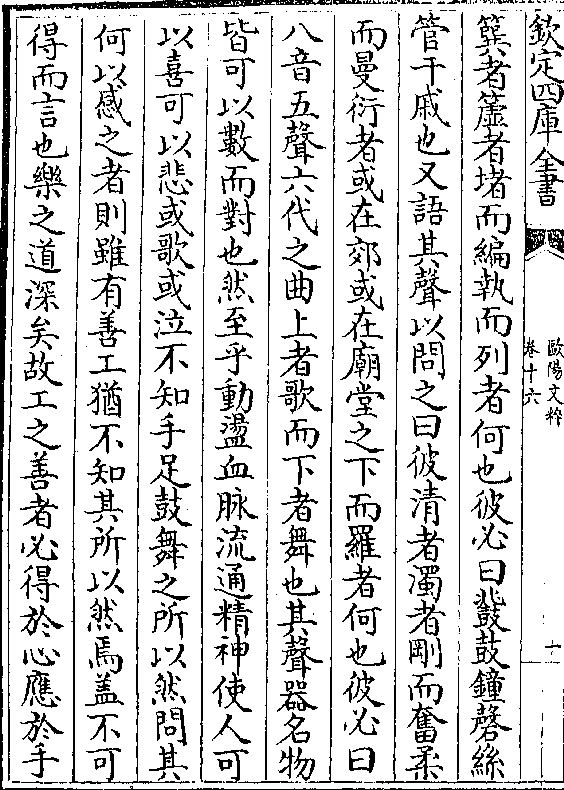 欽定四庫全書
歐陽文粹
卷十六
十
簨者簴者堵而編執而列者何也彼必曰鼗鼓鐘磬絲
管干戚也又語其聲以問之曰彼清者濁者剛而奮柔
而曼衍者或在郊或在廟堂之下而羅者何也彼必曰
八音五聲六代之曲上者歌而下者舞也其聲器名物
皆可以數而對也然至乎動盪血脉流通精神使人可
以喜可以悲或歌或泣不知手足鼓舞之所以然問其
何以感之者則雖有善工猶不知其所以然焉盖不可
得而言也樂之道深矣故工之善者必得於心應於手